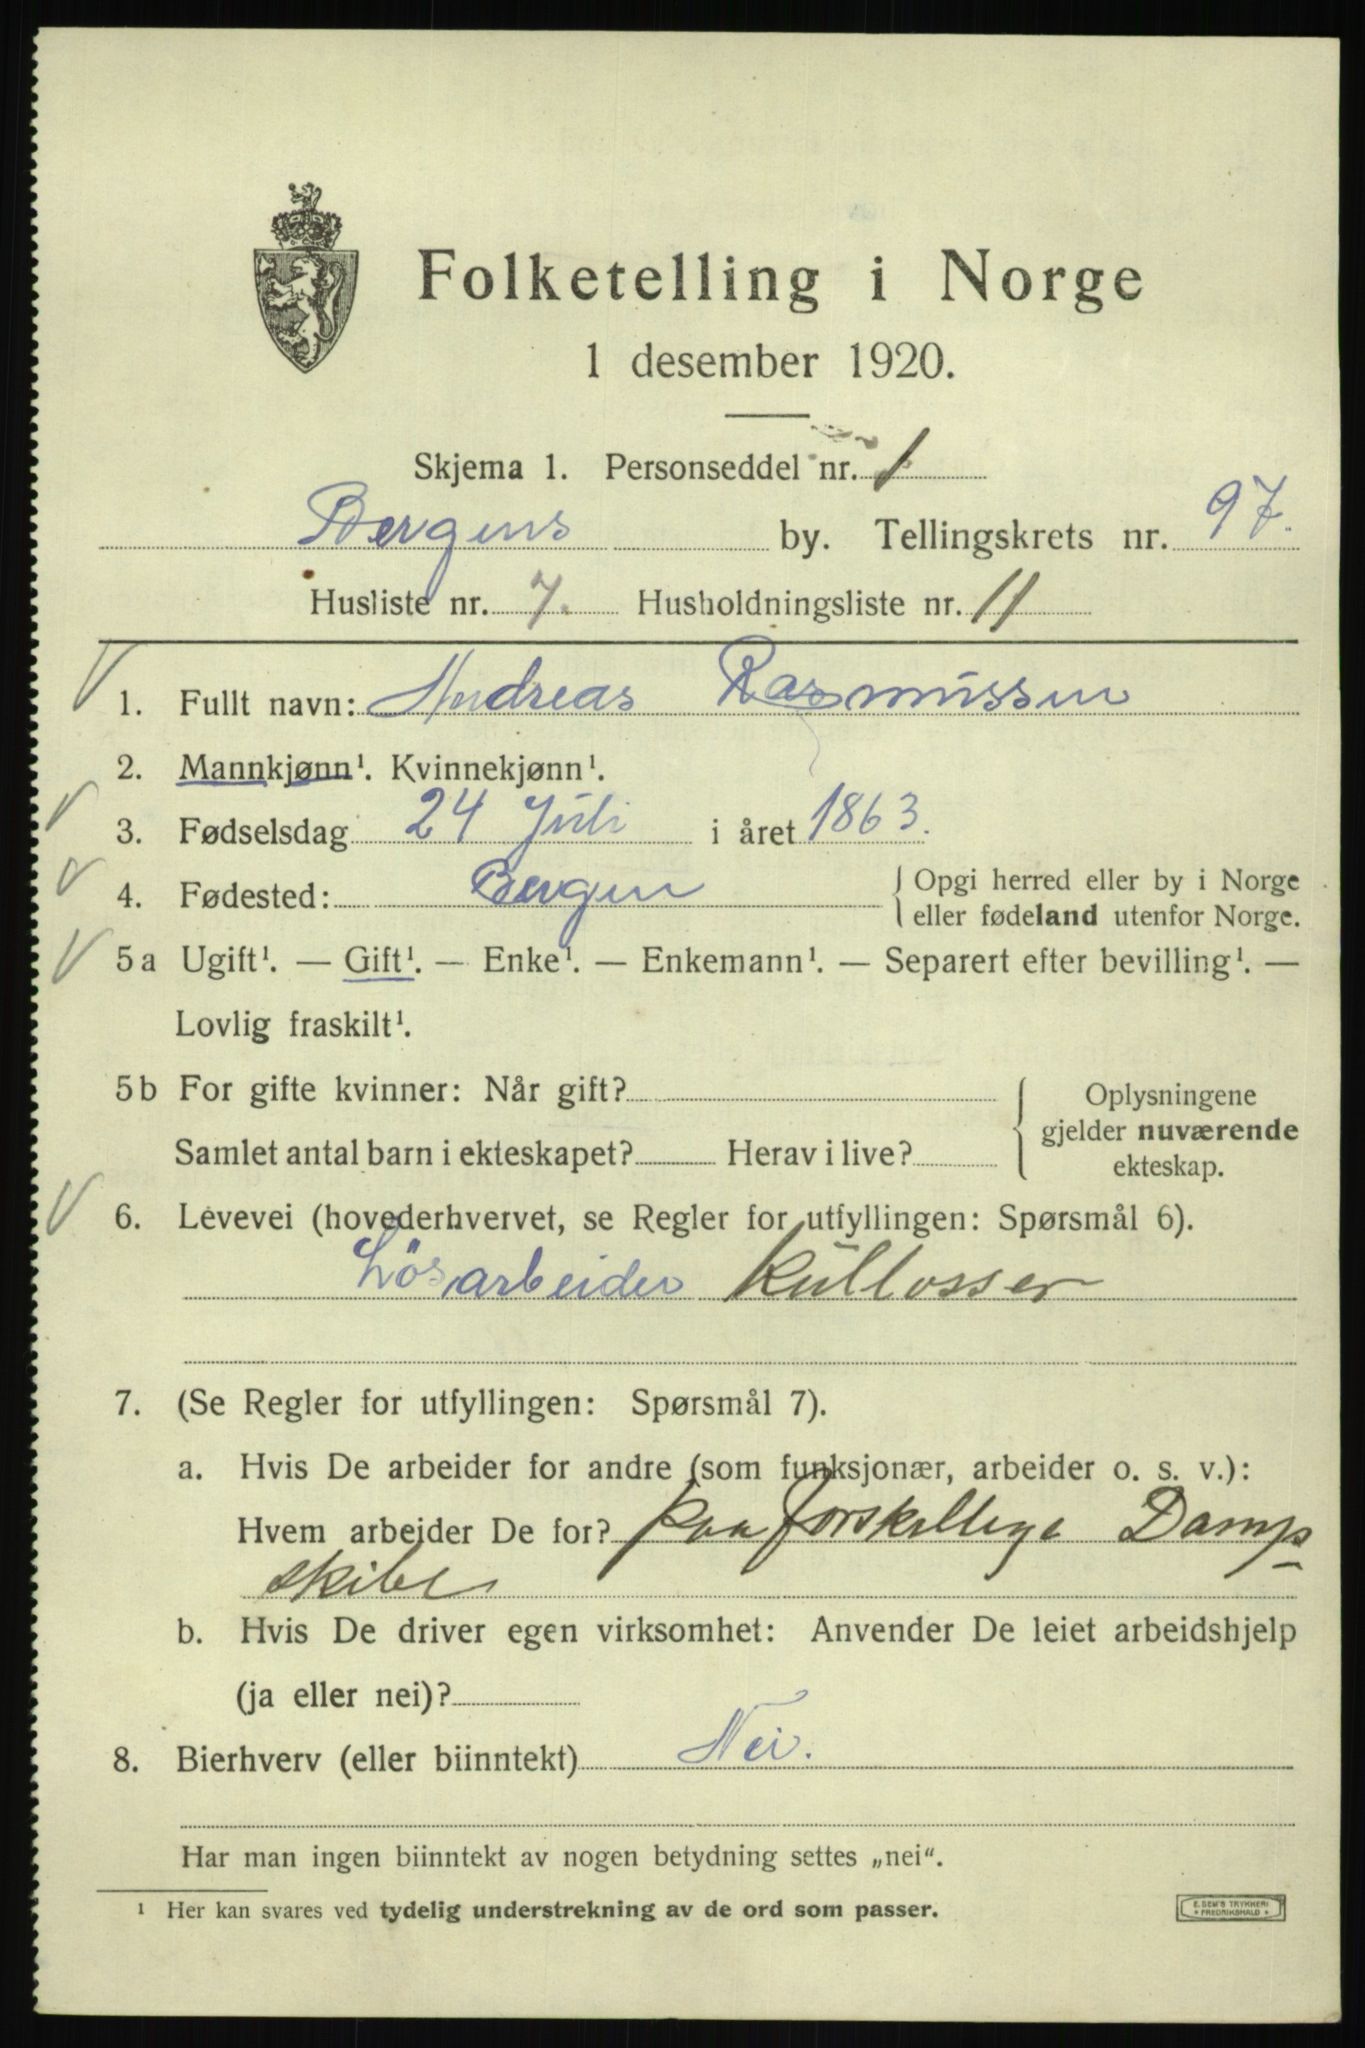 Folketelling i Norge
1 desember 1920.
Skjema 1. Personseddel nr. 1
Bergens by. Tellingskrets nr. 97.
Husliste nr. 7. Husholdningsliste nr. 11
1. Fullt navn: Andreas Rasmussen
2. Mannkjønn¹. Kvinnekjønn¹.
3. Fødselsdag 24 Juli i året 1863.
4. Fødested: Bergen { Opgi herred eller by i Norge
eller fødeland utenfor Norge.
5a Ugift¹. — Gift¹. — Enke¹. — Enkemann¹. — Separert efter bevilling¹. —
Lovlig fraskilt¹.
5b For gifte kvinner: Når gift? { Oplysningene
gjelder nuværende
Samlet antal barn i ekteskapet? Herav i live? ekteskap.
6. Levevei (hovederhvervet, se Regler for utfyllingen: Spørsmål 6).
Lösarbeider Kullosser
7. (Se Regler for utfyllingen: Spørsmål 7).
a. Hvis De arbeider for andre (som funksjonær, arbeider o. s. v.):
Hvem arbeider De for? paa forskellige Damp
skibe
b. Hvis De driver egen virksomhet: Anvender De leiet arbeidshjelp
(ja eller nei)?
8. Bierhverv (eller biinntekt) Nei.
Har man ingen biinntekt av nogen betydning settes „nei“.
¹ Her kan svares ved tydelig understrekning av de ord som passer.
E. SEM'S TRYKKERI
* FREDRIKSHALD *